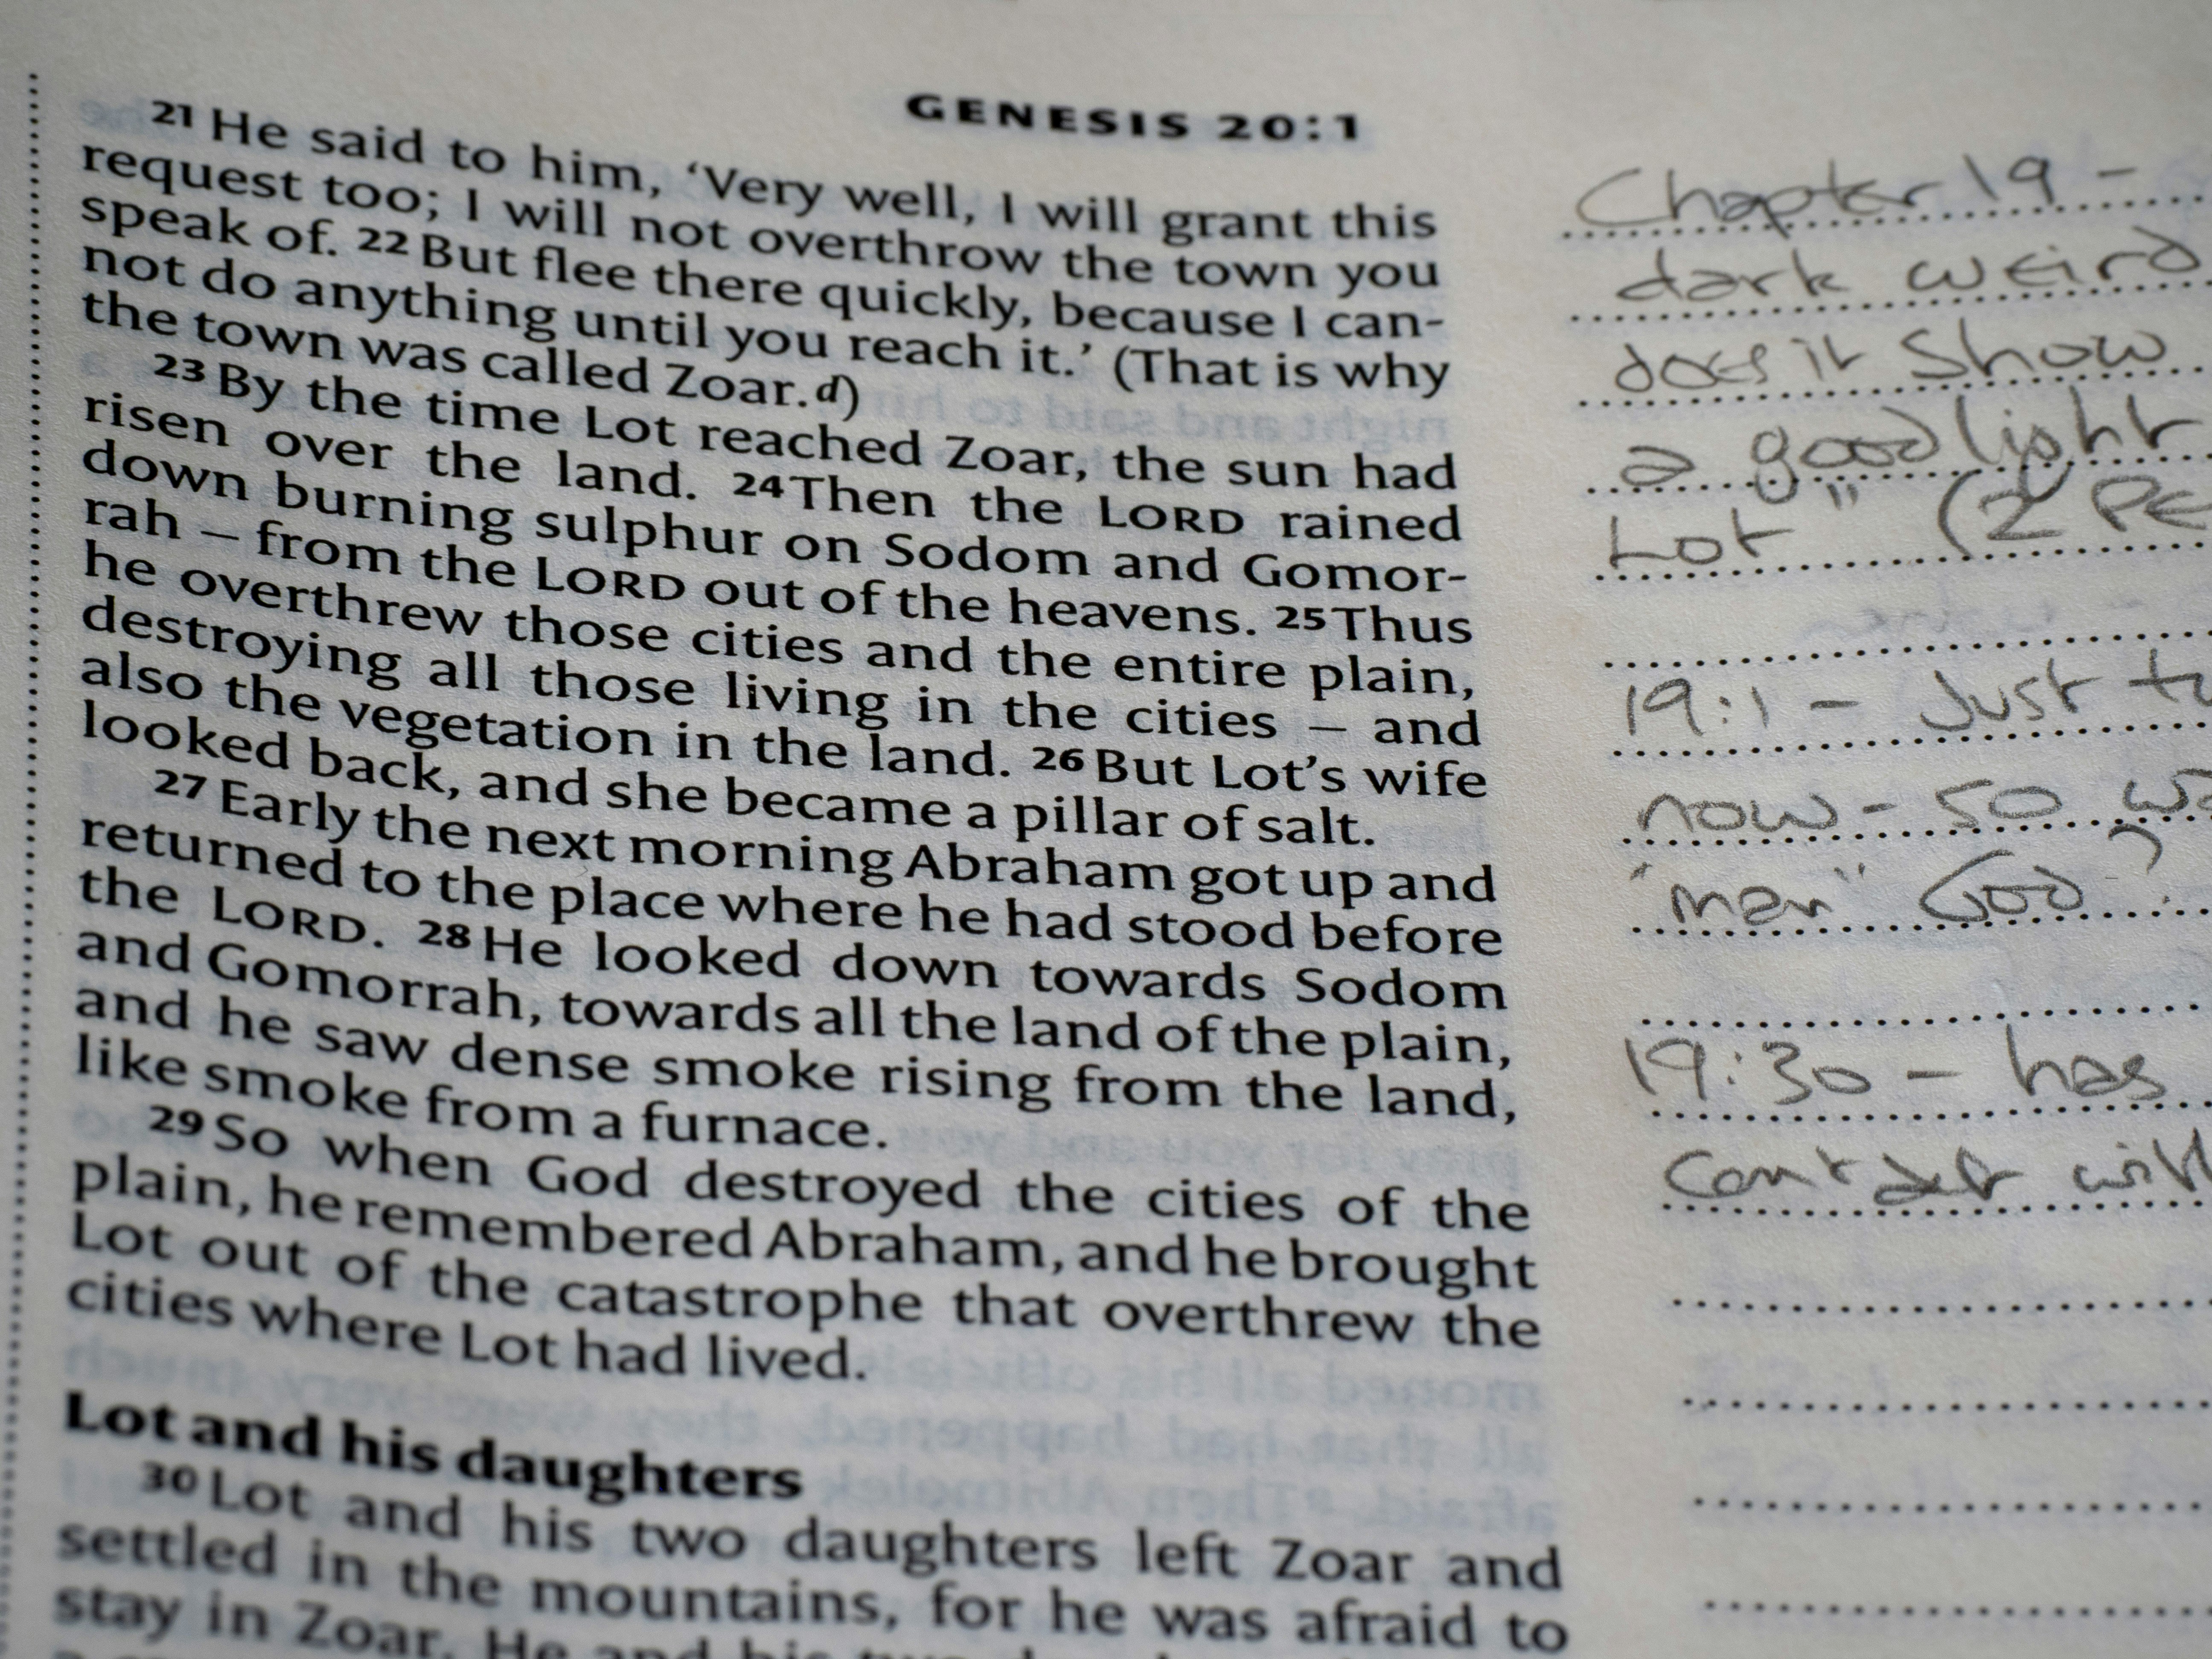 GENESIS 20:1
21 He said to him, ‘Very well, I will grant this
request too; I will not overthrow the town you
speak of. 22 But flee there quickly, because I can-
not do anything until you reach it.’ (That is why
the town was called Zoar.d)
23 By the time Lot reached Zoar, the sun had
risen over the land. 24 Then the LORD rained
down burning sulphur on Sodom and Gomor-
rah – from the LORD out of the heavens. 25 Thus
he overthrew those cities and the entire plain,
destroying all those living in the cities – and
also the vegetation in the land. 26 But Lot’s wife
looked back, and she became a pillar of salt.
27 Early the next morning Abraham got up and
returned to the place where he had stood before
the LORD. 28 He looked down towards Sodom
and Gomorrah, towards all the land of the plain,
and he saw dense smoke rising from the land,
like smoke from a furnace.
29 So when God destroyed the cities of the
plain, he remembered Abraham, and he brought
Lot out of the catastrophe that overthrew the
cities where Lot had lived.
Lot and his daughters
30 Lot and his two daughters left Zoar and
settled in the mountains, for he was afraid to
stay in Zoar. He and his two
Chapter 19 -
dark weird
does it show
a good light
Lot" (2 PE
19:1 - Just
now - so
"men" God?
19:30 - has